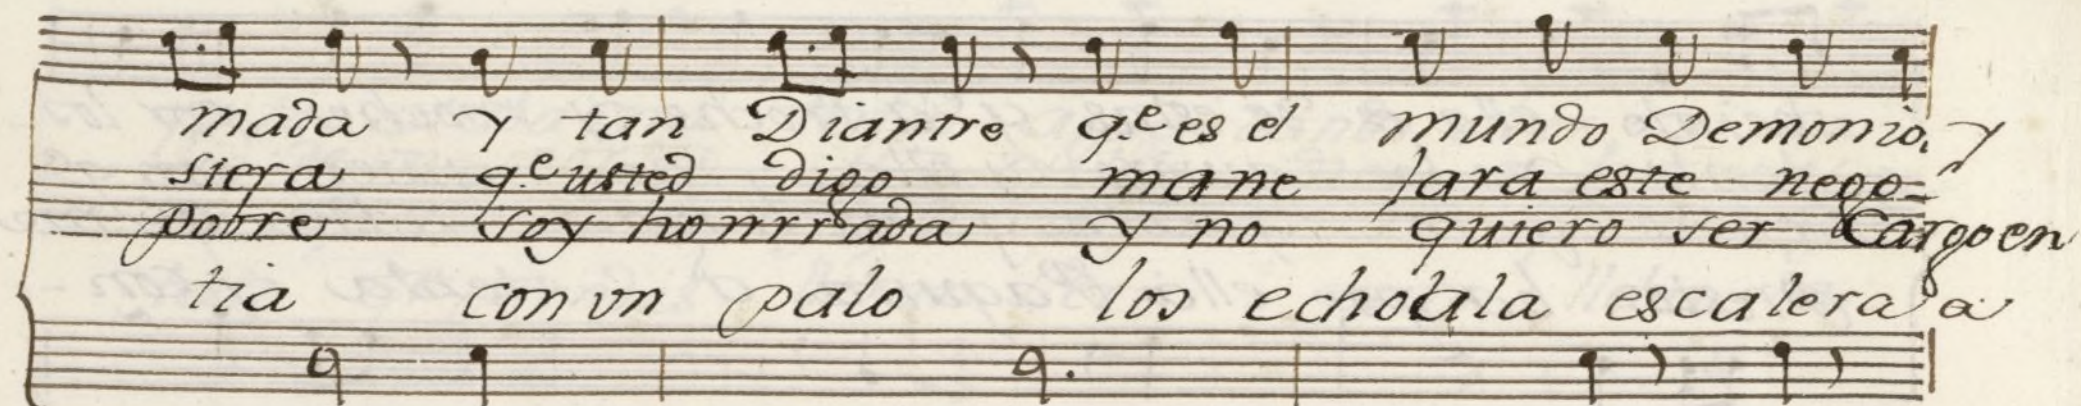 mada y tan Diantre q.e es el mundo Demonio, y
siera q.e usted digo mane jara este nego-
pobre soy honrrada y no quiero ser Cargo en
tia con vn palo los echo la escalera a